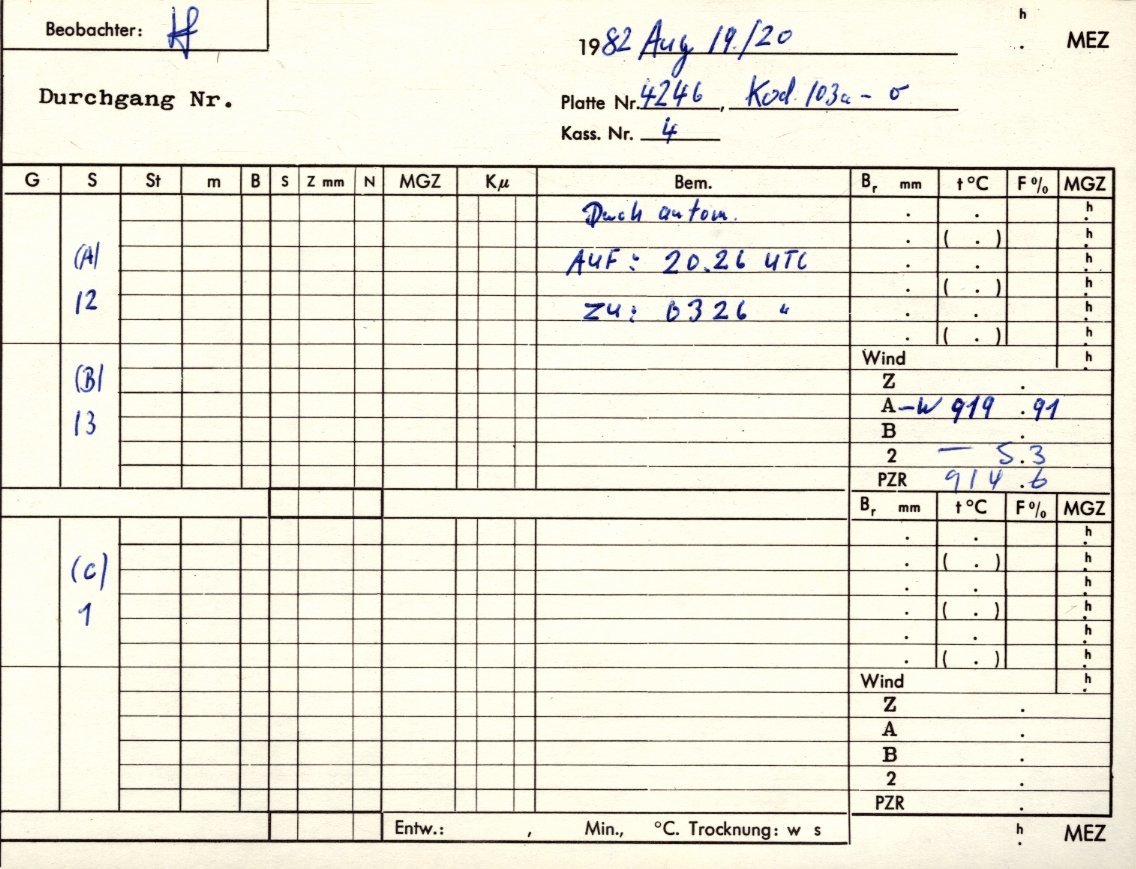 Beobachter:
h
1982 Aug 19./20 . MEZ
Durchgang Nr.
Platte Nr. 4246, Kod. 103a-O
Kass. Nr. 4
G S St m B S Z mm N MGZ Kµ Bem. Br mm t °C F % MGZ
Durch autom. . . h
. ( . ) h
(A) AUF: 20.26 UTC . . h
12 . ( . ) h
ZU: 0326 " . . h
. ( . ) h
Wind h
(B) Z .
13 A -W 919 .91
B .
2 — 5.3
PZR 914.6
Br mm t °C F % MGZ
. . h
(C) . ( . ) h
. . h
1 . ( . ) h
. . h
. ( . ) h
Wind h
Z .
A .
B .
2 .
PZR .
Entw.: , Min., °C. Trocknung: w s h . MEZ